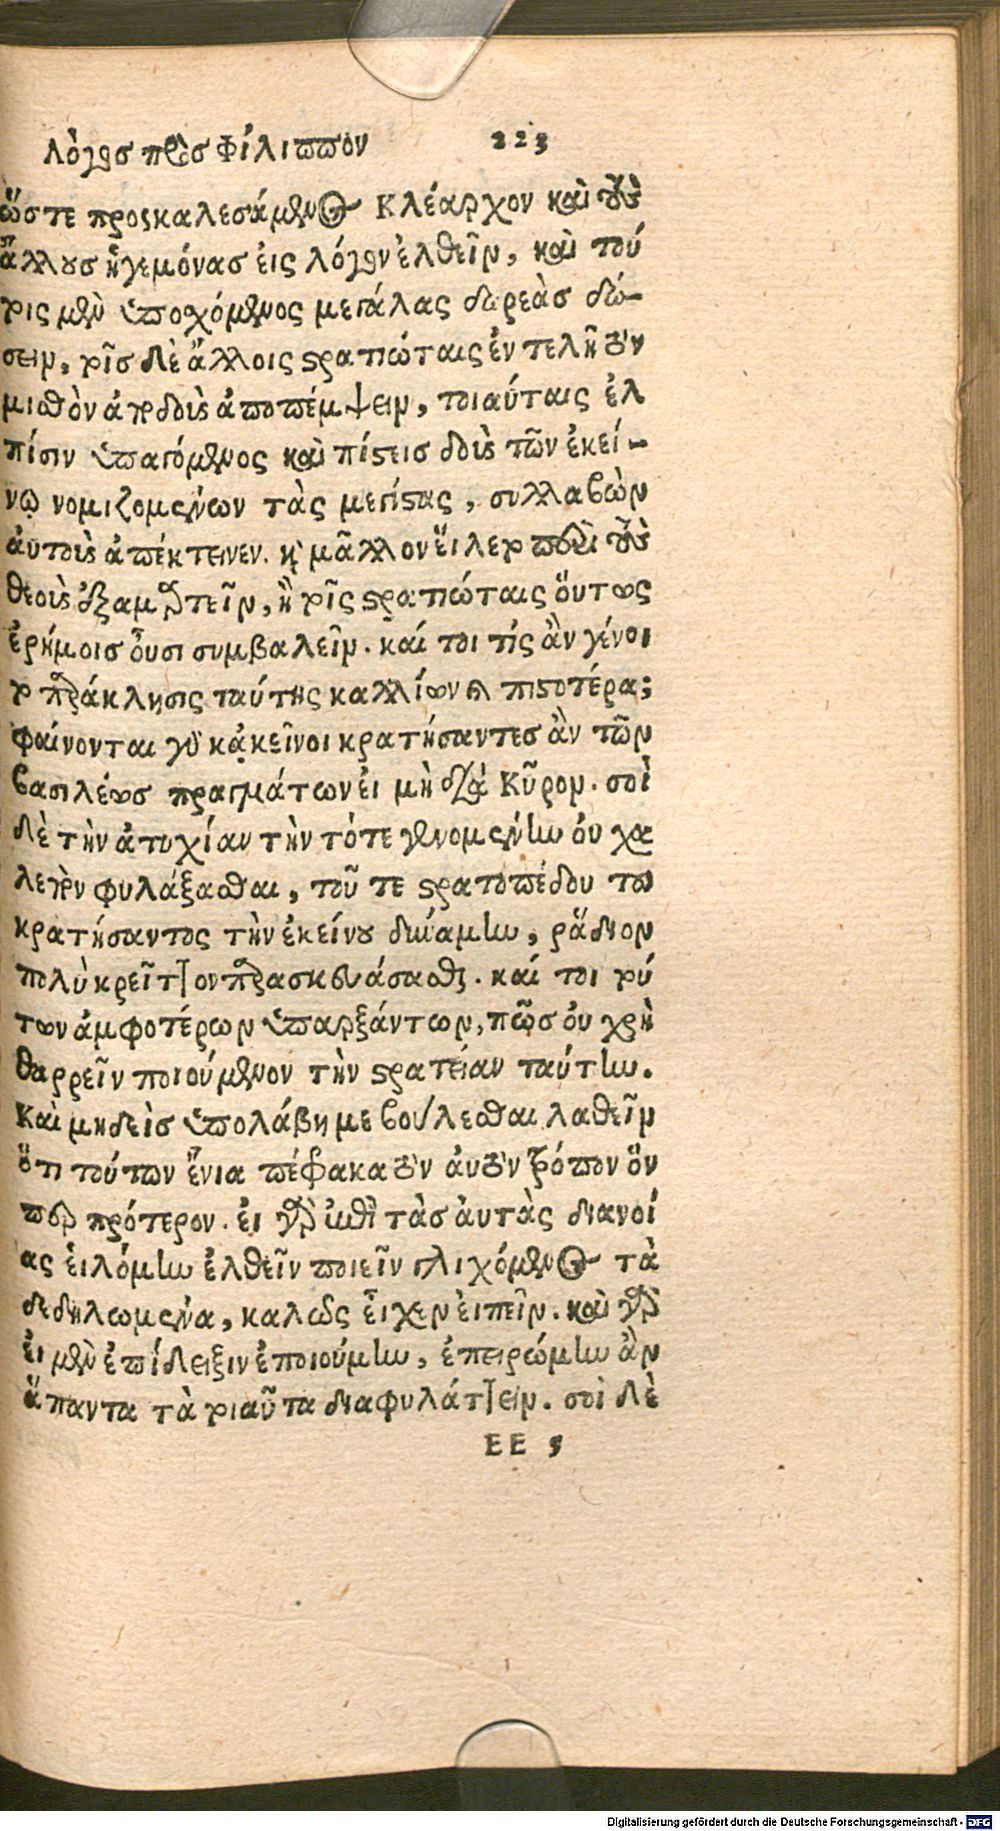 Λόγος πρὸς Φίλιππον 223
ὥστε προσκαλεσάμενος Κλέαρχον καὶ τοὺς
ἄλλους ἡγεμόνας εἰς λόγον ἐλθεῖν, καὶ τού
τοις μὲν ὑποσχόμενος μεγάλας δωρεὰς δώ-
σειν, τοῖς δὲ ἄλλοις στρατιώταις ἐντελῆ τὸν
μισθὸν ἀποδοὺς ἀποπέμψειν, τοιαύταις ἐλ
πίσιν ὑπαγόμενος καὶ πίστεις δοὺς τῶν ἐκεί-
νῳ νομιζομένων τὰς μεγίστας, συλλαβὼν
αὐτοὺς ἀπέκτεινεν. καὶ μᾶλλον εἵλετο περὶ τοὺς
θεοὺς ἐξαμαρτεῖν, ἢ τοῖς στρατιώταις οὕτως
ἐρήμοις οὖσι συμβαλεῖν. καί τοι τίς ἂν γένοι
το παράκλησις ταύτης καλλίων ἢ πιστοτέρα;
φαίνονται γὰρ κἀκεῖνοι κρατήσαντες ἂν τῶν
βασιλέως πραγμάτων εἰ μὴ διὰ Κῦρον. σοὶ
δὲ τὴν ἀτυχίαν τὴν τότε γενομένην οὐ χα
λεπὸν φυλάξασθαι, τοῦ τε στρατοπέδου τοῦ
κρατήσαντος τὴν ἐκείνου δύναμιν, ῥᾴδιον
πολὺ κρεῖττον παρασκευάσασθαι. καί τοι τού
των ἀμφοτέρων ὑπαρξάντων, πῶς οὐ χρὴ
θαρρεῖν ποιούμενον τὴν στρατείαν ταύτην.
Καὶ μηδεὶς ὑπολάβῃ με βούλεσθαι λαθεῖν
ὅτι τούτων ἔνια πέφακα τὸν αὐτὸν τρόπον ὃν
περ πρότερον. εἰ γὰρ ἐπὶ τὰς αὐτὰς διανοί
ας εἱλόμην ἐλθεῖν ποιεῖν γλιχόμενος τὰ
δεδηλωμένα, καλῶς εἶχεν εἰπεῖν. καὶ γὰρ
εἰ μὲν ἐπίδειξιν ἐποιούμην, ἐπειρώμην ἂν
ἅπαντα τὰ τοιαῦτα διαφυλάττειν. σοὶ δὲ
EE 5
Digitalisierung gefördert durch die Deutsche Forschungsgemeinschaft - DFG